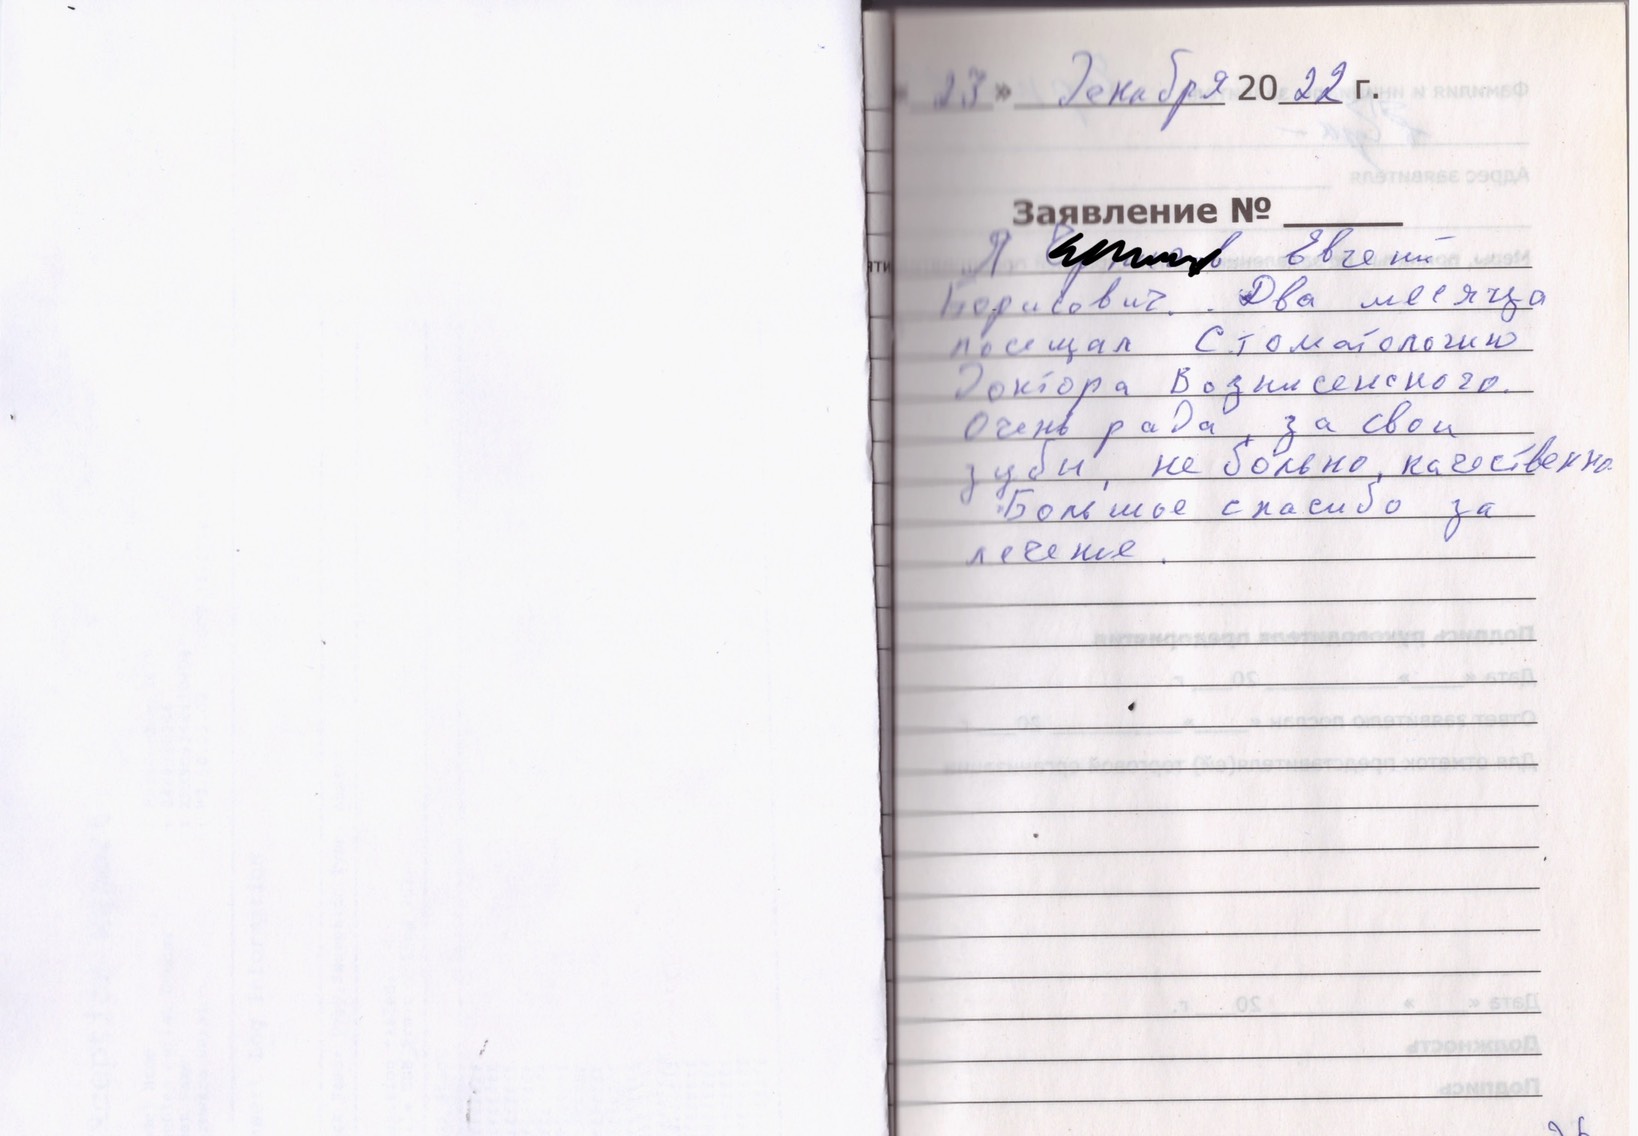 « 23 » Декабря 2022 г.
Заявление № ______
Я Евгений
Борисович. Два месяца
посещал Стоматологию
Доктора Вознисенского.
Очень рада, за свои
зубы, не больно, качественно
Большое спасибо за
лечение.